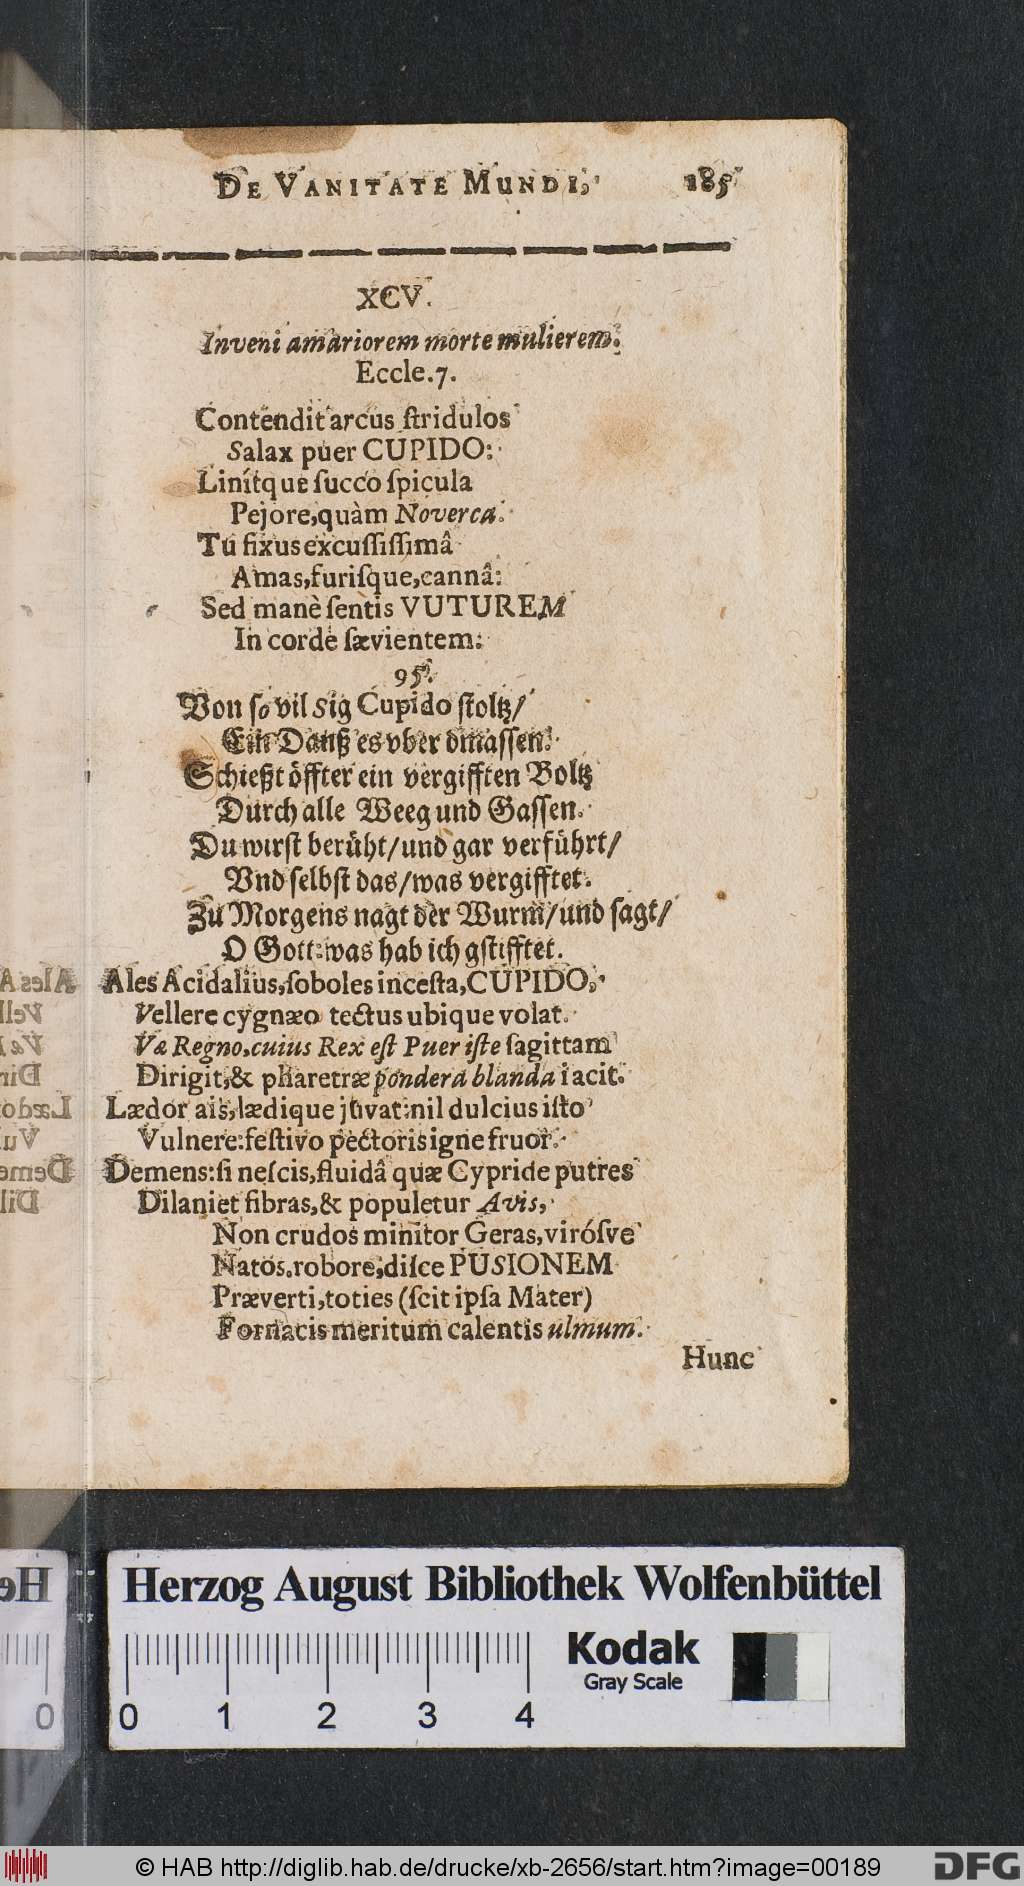 DE VANITATE MUNDI, 185
XCV.
Inveni amariorem morte mulierem.
Eccle.7.
Contendit arcus ſtridulos
Salax puer CUPIDO:
Linítque ſucco ſpicula
Pejore, quàm Noverca.
Tu fixus excuſſiſſimâ
Amas, furiſque, cannâ:
Sed manè ſentis VUTUREM
In corde ſævientem:
95.
Von ſo vil Sig Cupido ſtoltz/
Ein Danß es vber dmaſſen.
Schießt öffter ein vergifften Boltz
Durch alle Weeg und Gaſſen.
Du wirſt berüht/ und gar verführt/
Vnd ſelbſt das/ was vergifftet.
Zu Morgens nagt der Wurm/ und ſagt/
O Gott: was hab ich gſtifftet.
Ales Acidalius, ſoboles inceſta, CUPIDO,
Vellere cygnæo tectus ubique volat.
Væ Regno, cuius Rex eſt Puer iſte ſagittam
Dirigit, & pharetræ pondera blanda iacit.
Lædor ais, lædique juvat: nil dulcius iſto
Vulnere: feſtivo pectoris igne fruor.
Demens: ſi neſcis, fluidâ quæ Cypride putres
Dilaniet fibras, & populetur Avis,
Non crudos minitor Geras, viróſve
Natos. robore, diſce PUSIONEM
Præverti, toties (ſcit ipſa Mater)
Fornacis meritum calentis ulmum.
Hunc
Herzog August Bibliothek Wolfenbüttel
Kodak
Gray Scale
0 0 1 2 3 4
© HAB http://diglib.hab.de/drucke/xb-2656/start.htm?image=00189
DFG